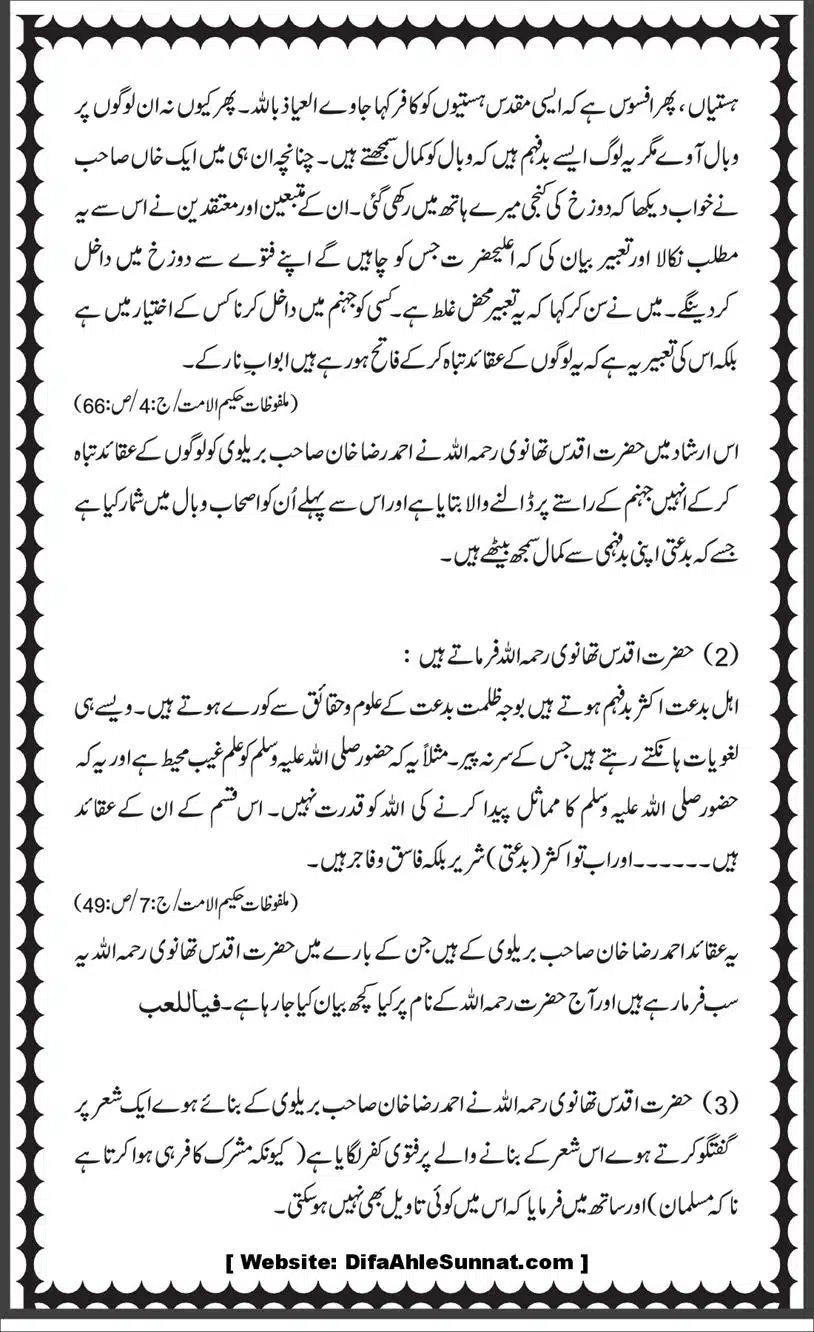 ہستیاں، پھر افسوس ہے کہ ایسی مقدس ہستیوں کو کافر کہا جاوے العیاذ باللہ۔ پھر کیوں نہ ان لوگوں پر
وبال آوے مگر یہ لوگ ایسے بدفہم ہیں کہ وبال کو کمال سمجھتے ہیں۔ چنانچہ ان ہی میں ایک خاں صاحب
نے خواب دیکھا کہ دوزخ کی کنجی میرے ہاتھ میں رکھی گئی۔ ان کے متبعین اور معتقدین نے اس سے یہ
مطلب نکالا اور تعبیر بیان کی کہ اعلیحضرت جس کو چاہیں گے اپنے فتوے سے دوزخ میں داخل
کردینگے۔ میں نے سن کر کہا کہ یہ تعبیر محض غلط ہے۔ کسی کو جہنم میں داخل کرنا کس کے اختیار میں ہے
بلکہ اس کی تعبیر یہ ہے کہ یہ لوگوں کے عقائد تباہ کرکے فاتح ہورہے ہیں ابوابِ نار کے۔
(ملفوظات حکیم الامت/ج:4/ص:66)
اس ارشاد میں حضرت اقدس تھانوی رحمہ اللہ نے احمد رضا خان صاحب بریلوی کو لوگوں کے عقائد تباہ
کرکے انہیں جہنم کے راستے پر ڈالنے والا بتایا ہے اور اس سے پہلے اُن کو اصحاب وبال میں شمار کیا ہے
جسے کہ بدعتی اپنی بدفہمی سے کمال سمجھ بیٹھے ہیں۔
(2) حضرت اقدس تھانوی رحمہ اللہ فرماتے ہیں :
اہل بدعت اکثر بدفہم ہوتے ہیں بوجہ ظلمت بدعت کے علوم وحقائق سے کورے ہوتے ہیں۔ ویسے ہی
لغویات ہانکتے رہتے ہیں جس کے سر نہ پیر۔ مثلاً یہ کہ حضور صلی اللہ علیہ وسلم کو علم غیب محیط ہے اور یہ کہ
حضور صلی اللہ علیہ وسلم کا مماثل پیدا کرنے کی اللہ کو قدرت نہیں۔ اس قسم کے ان کے عقائد
ہیں۔۔۔۔۔۔اور اب تو اکثر (بدعتی) شریر بلکہ فاسق وفاجر ہیں۔
(ملفوظات حکیم الامت/ج:7/ص:49)
یہ عقائد احمد رضا خان صاحب بریلوی کے ہیں جن کے بارے میں حضرت اقدس تھانوی رحمہ اللہ یہ
سب فرمارہے ہیں اور آج حضرت رحمہ اللہ کے نام پر کیا کچھ بیان کیا جارہا ہے۔ فیاللعب
(3) حضرت اقدس تھانوی رحمہ اللہ نے احمد رضا خان صاحب بریلوی کے بنائے ہوے ایک شعر پر
گفتگو کرتے ہوے اس شعر کے بنانے والے پر فتوی کفر لگایا ہے (کیونکہ مشرک کافر ہی ہوا کرتا ہے
نا کہ مسلمان) اور ساتھ میں فرمایا کہ اس میں کوئی تاویل بھی نہیں ہوسکتی۔
[ Website: DifaAhleSunnat.com ]